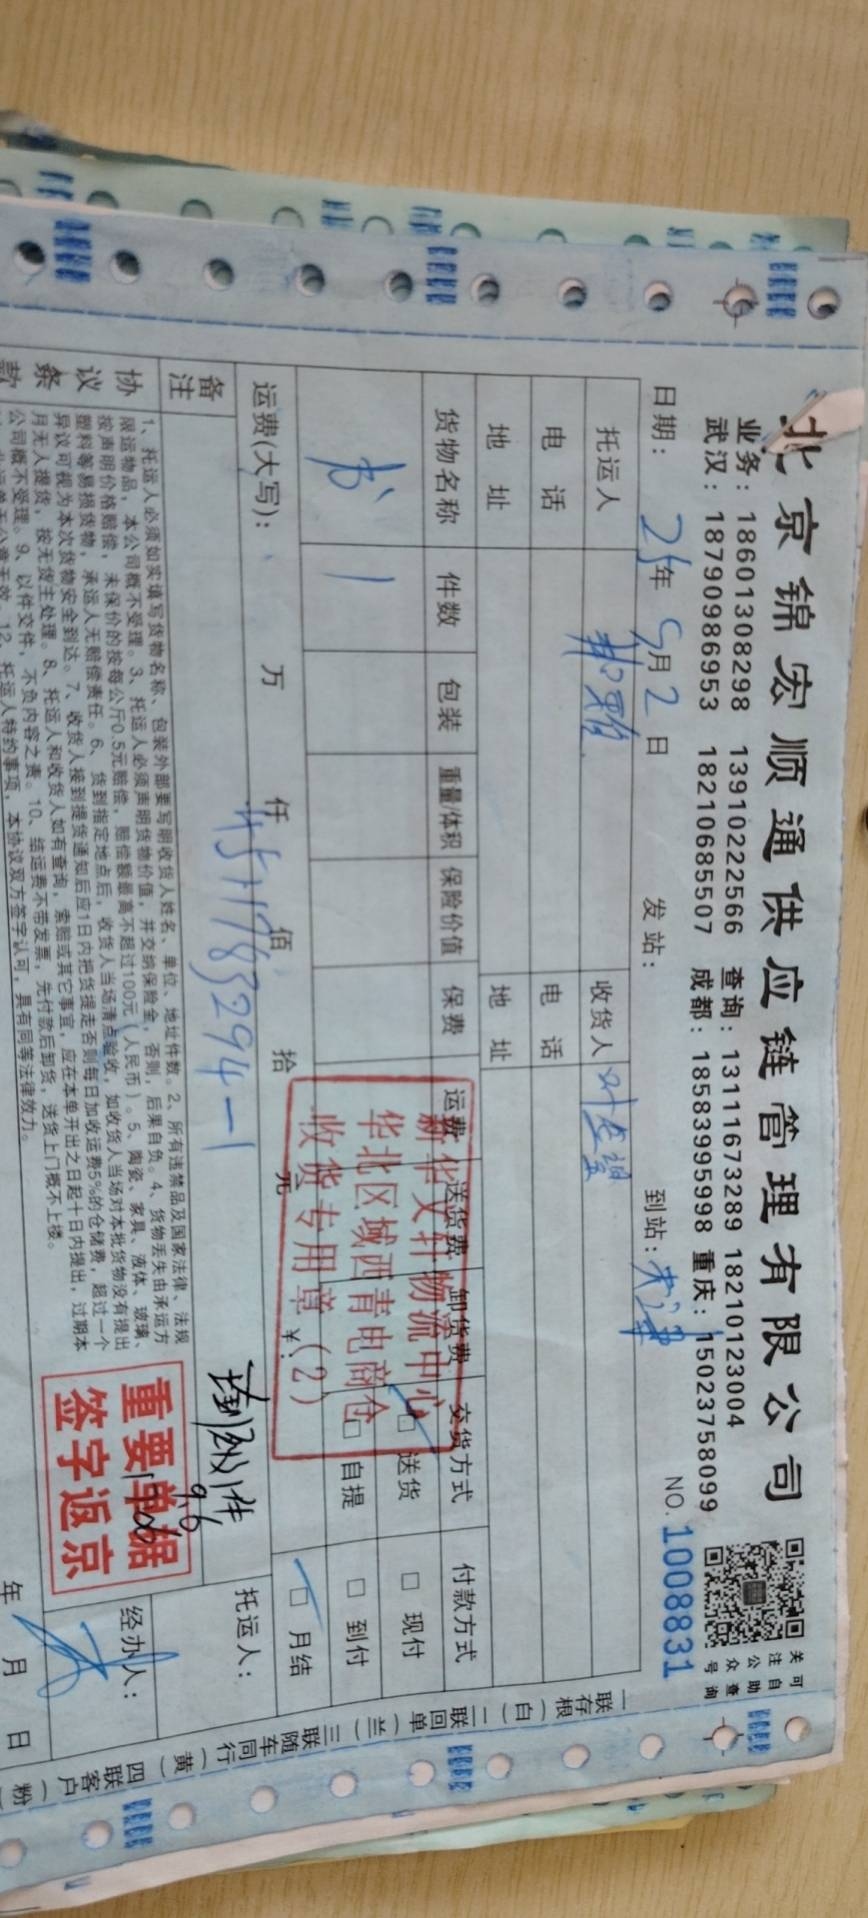 北京锦宏顺通供应链管理有限公司
业务：18601308298 13910222566 查询：13111673289 18210123004
武汉：18790986953 18210685507 成都：18583995998 重庆：15023758099
关注公众号
可自助查询
日期：25年9月2日 发站： 到站：天津 NO.1008831
托运人 收货人
电话 电话
地址 地址
货物名称 件数 包装 重量/体积 保险价值 保费 运费 送货费 卸货费 交货方式 付款方式
书 1 □送货 □现付
□自提 □到付
□月结
新华文轩物流中心
华北区域西青电商仓
收货专用章（2）
运费(大写)： 万 仟 佰 拾 元 ¥：
备注 托运人：
协议条款
1、托运人必须如实填写货物名称、包装外部要写明收货人姓名、单位、地址件数。2、所有违禁品及国家法律、法规
限运物品，本公司概不受理。3、托运人必须声明货物价值，并交纳保险金，否则，后果自负。4、货物丢失由承运方
按声明价格赔偿，未保价的按每公斤0.5元赔偿，赔偿额最高不超过100元（人民币）。5、陶瓷、家具、液体、玻璃、
塑料等易损货物，承运人无赔偿责任。6、货到指定地点后，收货人当场清点验收，如收货人当场对本批货物没有提出
异议可视为本次货物安全到达。7、收货人接到提货通知后应1日内把货提走否则每日加收运费5%的仓储费，超过一个
月无人提货，按无货主处理。8、托运人和收货人如有查询，索赔或其它事宜，应在本单开出之日起十日内提出，过期本
公司概不受理。9、以件交件，不负内容之责。10、结运费不带发票，先付款后卸货，送货上门概不上楼。
12、托运人特约事项，本协议双方签字认可，具有同等法律效力。
重要单据
签字返京
9.6
经办人：
年 月 日
一联存根（白）二联回单（兰）三联随车同行（黄）四联客户（粉